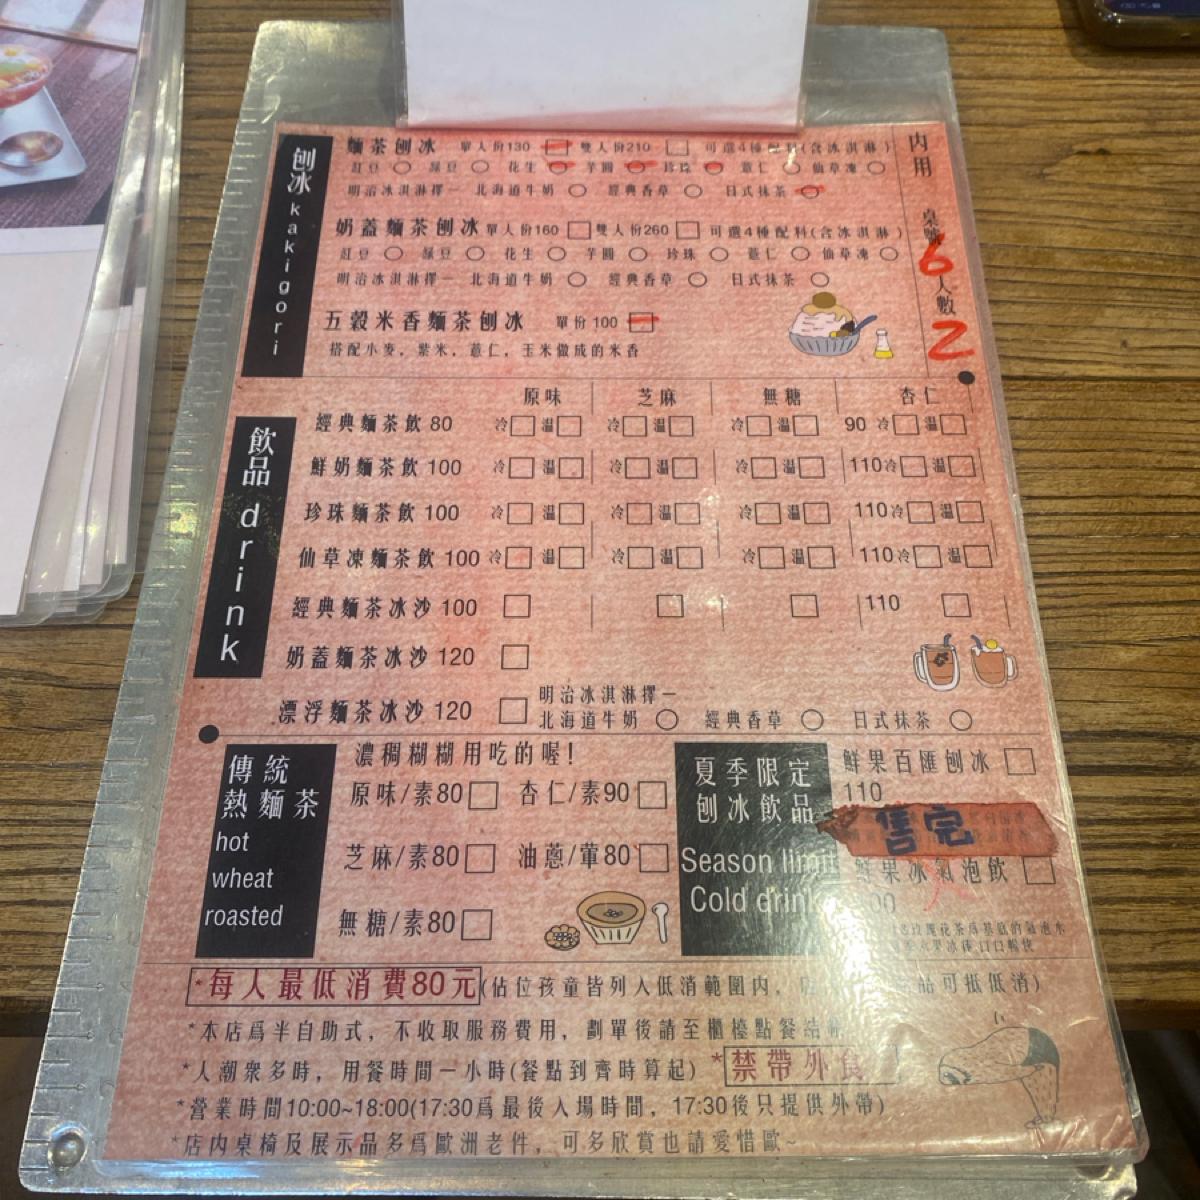 刨冰 kakigori
內用
桌號 6
人數 2
麵茶刨冰 單人份130 雙人份210 可選4種配料(含冰淇淋)
紅豆 綠豆 花生 芋圓 珍珠 薏仁 仙草凍
明治冰淇淋擇一 北海道牛奶 經典香草 日式抹茶
奶蓋麵茶刨冰 單人份160 雙人份260 可選4種配料(含冰淇淋)
紅豆 綠豆 花生 芋圓 珍珠 薏仁 仙草凍
明治冰淇淋擇一 北海道牛奶 經典香草 日式抹茶
五穀米香麵茶刨冰 單份100
搭配小麥，紫米，薏仁，玉米做成的米香
飲品 drink
原味 芝麻 無糖 杏仁
經典麵茶飲 80 冷 溫 冷 溫 冷 溫 90 冷 溫
鮮奶麵茶飲 100 冷 溫 冷 溫 冷 溫 110 冷 溫
珍珠麵茶飲 100 冷 溫 冷 溫 冷 溫 110 冷 溫
仙草凍麵茶飲 100 冷 溫 冷 溫 冷 溫 110 冷 溫
經典麵茶冰沙 100 110
奶蓋麵茶冰沙 120
漂浮麵茶冰沙 120 明治冰淇淋擇一
北海道牛奶 經典香草 日式抹茶
傳統
熱麵茶
hot
wheat
roasted
濃稠糊糊用吃的喔！
原味/素80 杏仁/素90
芝麻/素80 油蔥/葷80
無糖/素80
夏季限定
刨冰飲品
Season limit
Cold drink
鮮果百匯刨冰
110
售完
鮮果冰氣泡飲
*每人最低消費80元(佔位孩童皆列入低消範圍內，品可抵低消)
*本店為半自助式，不收取服務費用，劃單後請至櫃檯點餐結帳
*人潮眾多時，用餐時間一小時(餐點到齊時算起) *禁帶外食
*營業時間10:00~18:00(17:30為最後入場時間，17:30後只提供外帶)
*店內桌椅及展示品多為歐洲老件，可多欣賞也請愛惜歐~